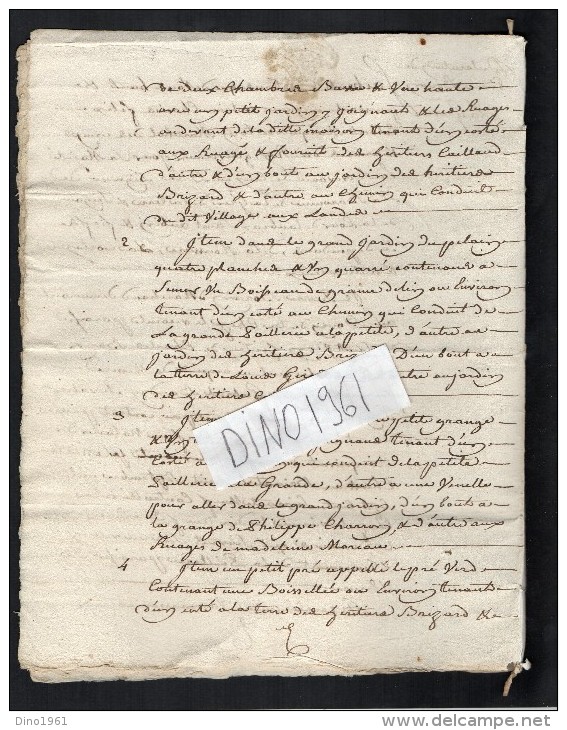 de deux Chambres Basse & Une haute
avec un petit jardin y joignant & les Ruages
au devant de la ditte maison tenant d'un costé
aux Ruages & fournit des heritiers Caillaud
d'autre & d'un bout au jardin des heritiers
Brizard & d'autre au Chemin qui Conduit
du dit Village aux Landes
2 Jtem dans le grand jardin du
quatre planches & Un quarré contenant a
Semer Un Boisseau de graine de lin ou Environ
tenant d'un coté au Chemin qui Conduit de
La grande Taillerie a la petite, d'autre au
jardin des heritiers D'un bout a
la terre de Louis au jardin
des heritiers
3 Jtem petite grange
& Un tenant d'un
Costé a qui conduit de la petite
Taillerie a la Grande, d'autre a une Venelle
pour aller dans le grand jardin, d'un bout a
la grange de Philippe Charron, & d'autre aux
Ruages de madelaine Moreau
4 Jtem un petit pré appellé le pré Verd
Contenant une Boissellée ou Environ tenant
d'un coté a la terre des heritiers Brizard &
DINO1961
Dino1961
www.delcampe.net